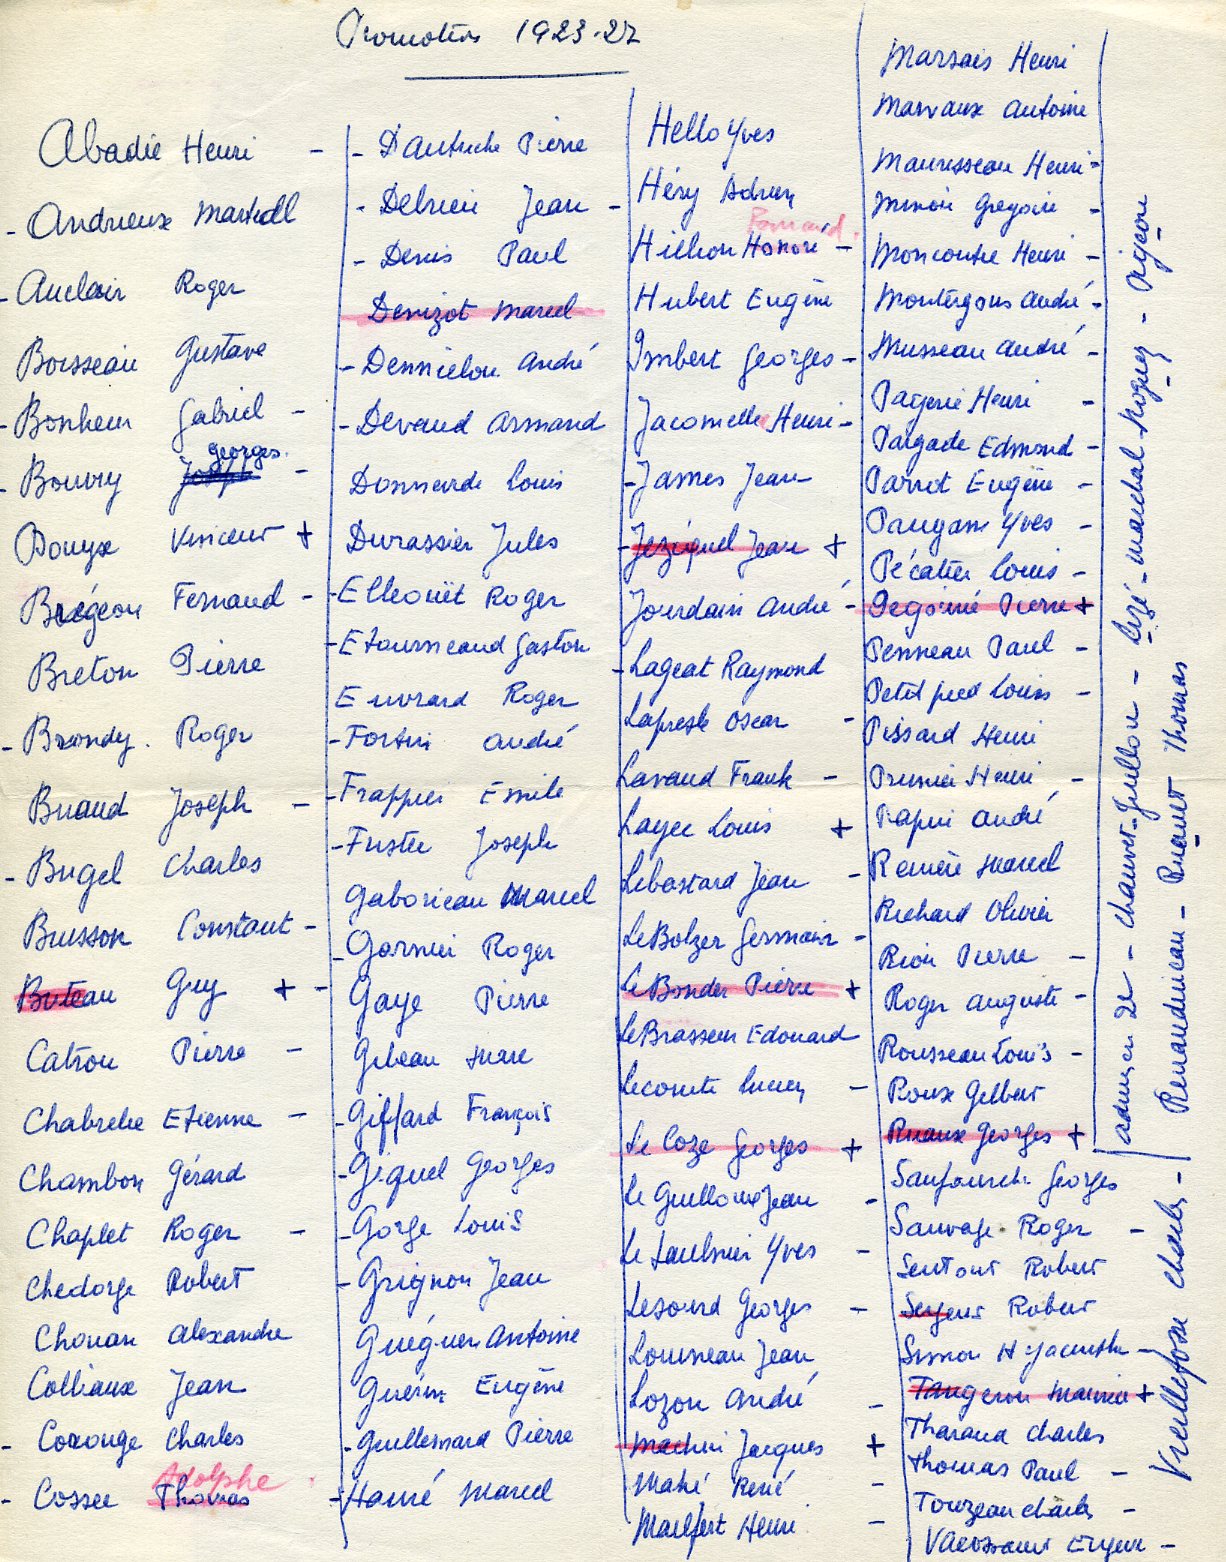 Promotion 1923-27
Abadie Henri -
- Andrieux Martial
- Auclair Roger
Boisseau Gustave
- Bonheur Gabriel -
Georges.
- Bouvry Joseph -
Bouyx Vincent +
Brégeon Fernand -
Breton Pierre
- Brondy. Roger
Bruaud Joseph -
- Bugel Charles
Buisson Constant -
Buteau Guy +
Catrou Pierre -
Chabrelie Etienne -
Chambon Gérard
Chaplet Roger -
Chedorge Robert
Chouan Alexandre
Colliaux Jean
- Coxouge Charles
Adolphe
- Cossec Thomas
- Dautuche Pierre
- Delrieu Jean
- Denis Paul
Denizot Marcel
- Denniélou André
- Devaud Armand
Donnerde Louis
Durassier Jules
- Elleouët Roger
- Etourneaud Gaston
Euvrard Roger
- Fortin André
- Frappier Emile
- Fuster Joseph
Gaborieau Marcel
- Garnier Roger
- Gaye Pierre
Gibeau Marc
- Giffard François
- Giquel Georges
- Gorge Louis
- Grignon Jean
Guéguen Antoine
Guérin Eugène
- Guillemard Pierre
- Hamé Marcel
Hello Yves
- Héry Adrien
Bernard.
Hillion Honoré -
Hubert Eugène
Imbert Georges -
Jacomelle Henri -
- James Jean
- Jézéquel Jean +
Jourdain André -
- Lageat Raymond
Lapresle Oscar -
Lavaud Frank -
Layec Louis +
Lebastard Jean -
Le Bolzer Germain -
Le Bonder Pierre +
Le Brasseur Edouard
Lecomte Lucien -
Le Coze Georges +
Le Guilloux Jean -
Le Saulnier Yves -
Lesourd Georges -
Lourneau Jean
Lozon André -
Machin Jacques +
Mahé René -
Malfert Henri -
Marsais Henri
Marvaux Antoine
Maurisseau Henri -
Minoii Gregoire -
Moncontre Henri -
Montergous André -
Musseau André -
Pagerie Henri -
Pargade Edmond -
Parrot Eugène -
Paugam Yves -
Pécatier Louis -
Pegoimé Pierre +
Penneau Paul -
Petitpied Louis -
Pissard Henri
Prunier Henri -
Rapin André
Renière Marcel
Richard Olivier
Riou Pierre -
Roger Auguste -
Rousseau Louis -
Roux Gilbert
Ruaux Georges +
Sanfourche Georges
Sauvage Roger -
Sentout Robert
Sergent Robert
Simon Hyacinthe -
Tangeron Maurice +
Tharaud Charles
Thomas Paul -
Touzeau Charles -
Vacossaint Eugène -
Vieillefosse Charles - Renaudineau - Ruault Thomas
admis en 2e - Chauvet-Grellou - Cizé - Marchal Noguez - Pigeon